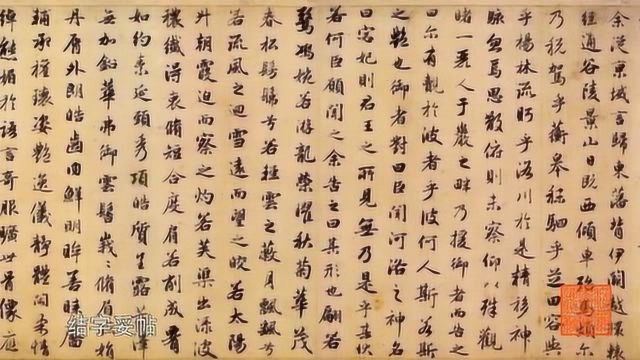 余從京域言歸東藩背伊闕越轘轅
經通谷陵景山日既西傾車殆馬煩尔
乃税駕乎蘅皋秣駟乎芝田容與
乎楊林流眄乎洛川於是精移神
駭忽焉思散俯則未察仰以殊觀
睹一麗人于巖之畔乃援御者而告之
曰尔有覿於彼者乎彼何人斯若斯
之艷也御者對曰臣聞河洛之神名
曰宓妃則君王之所見無乃是乎其狀
若何臣願聞之余告之曰其形也翩若
驚鴻婉若游龍榮曜秋菊華茂
春松髣髴兮若輕雲之蔽月飄飄兮
若流風之迴雪遠而望之皎若太陽
升朝霞迫而察之灼若芙蕖出淥波
穠纖得衷脩短合度肩若削成
如約素延頸秀項皓質呈露芳澤
無加鉛華弗御雲髻峩峩脩眉
丹脣外朗皓齒内鮮明眸善睞靨
輔承權瓌姿艷逸儀靜體閑柔情
綽態媚於語言奇服曠世骨像應
结字妥帖